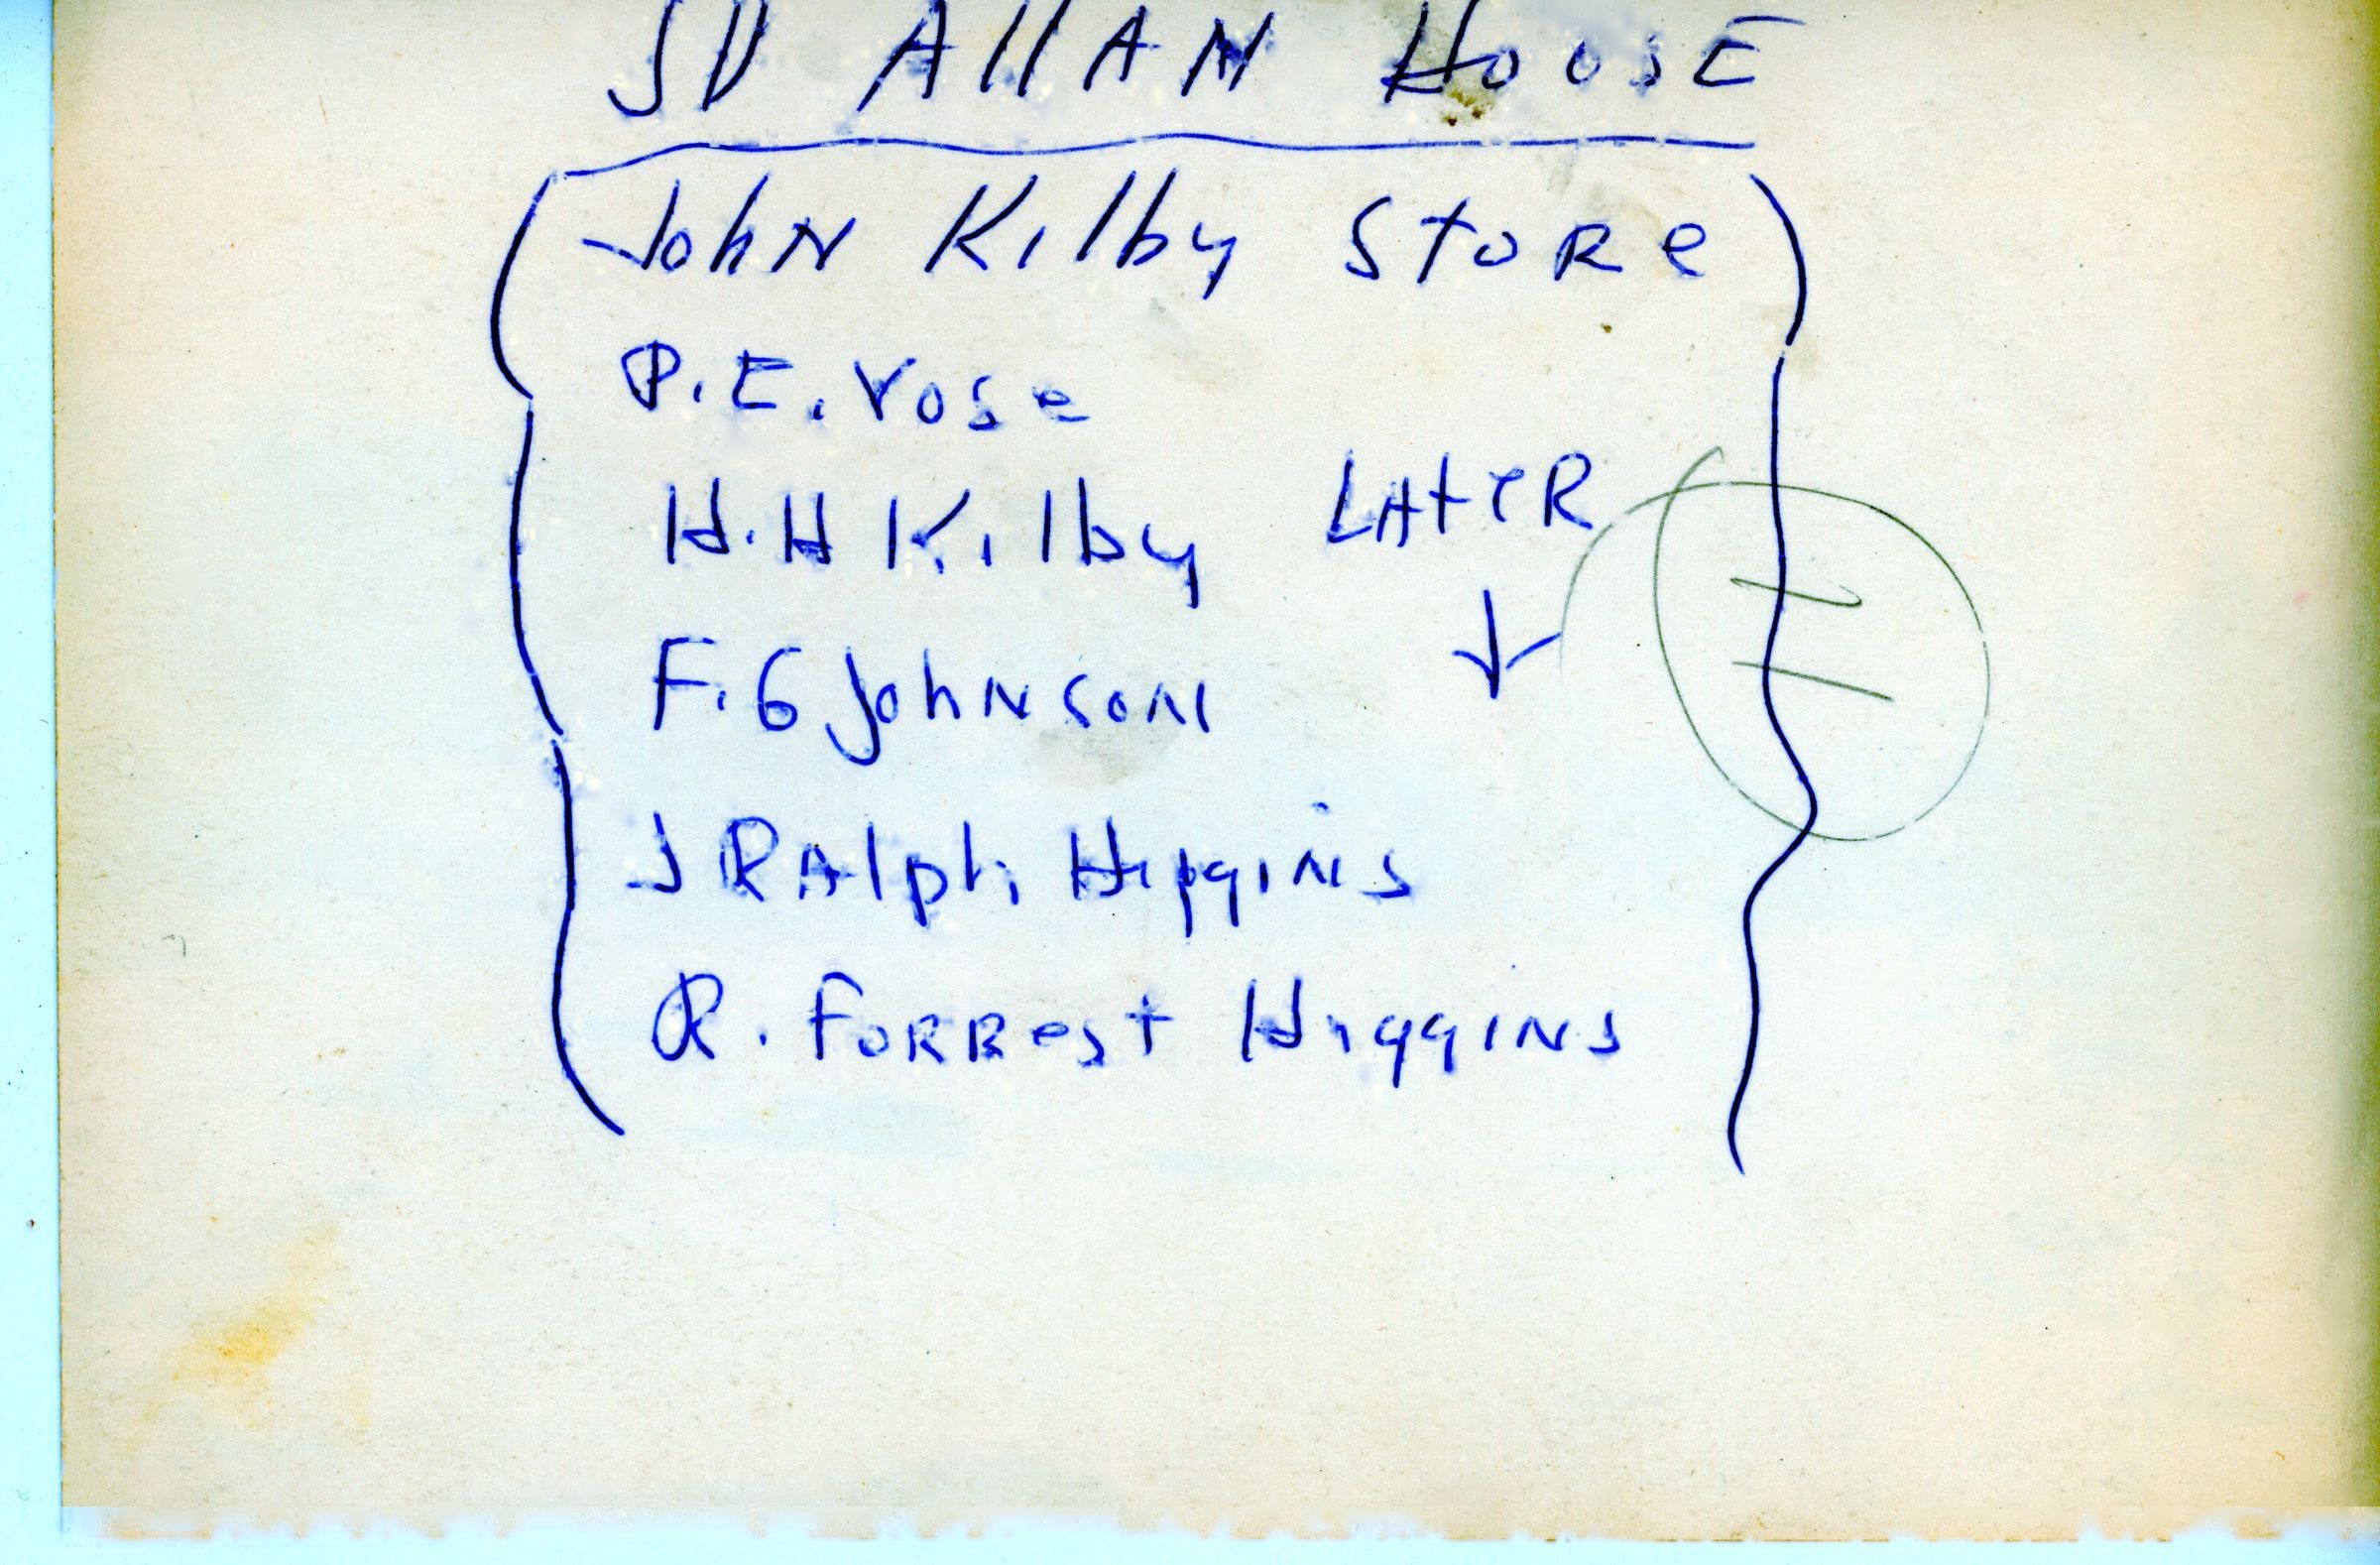 JD AllAN HousE
JohN Kilby StoRe
P.E. Vose
H.H Kilby LAteR
F.G JohNsoN
J RAlph HiggiNs
R. FoRRest HiggiNs